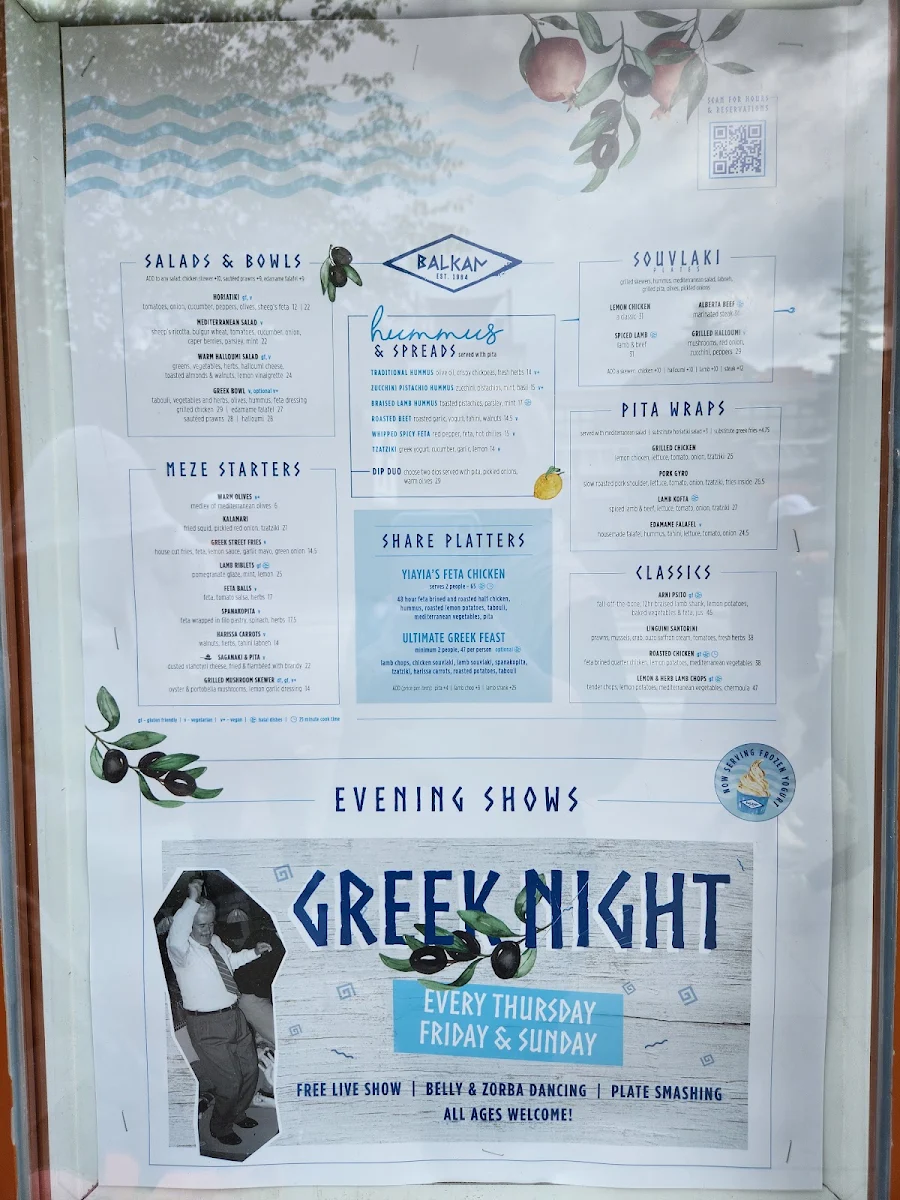 SCAN FOR HOURS
& RESERVATIONS
BALKAN
EST. 1984
SALADS & BOWLS
ADD to any salad, chicken skewer +10, sautéed prawns +9, edamame falafel +9
HORIATIKI gf, v
tomatoes, onion, cucumber, peppers, olives, sheep's feta 12 | 22
MEDITERRANEAN SALAD v
sheep's ricotta, bulgur wheat, tomatoes, cucumber, onion,
caper berries, parsley, mint 22
WARM HALLOUMI SALAD gf, v
greens, vegetables, herbs, halloumi cheese,
toasted almonds & walnuts, lemon vinaigrette 24
GREEK BOWL v, optional v+
tabouli, vegetables and herbs, olives, hummus, feta dressing
grilled chicken 29 | edamame falafel 27
sautéed prawns 28 | halloumi 28
MEZE STARTERS
WARM OLIVES v+
medley of mediterranean olives 6
KALAMARI
fried squid, pickled red onion, tzatziki 21
GREEK STREET FRIES v
house cut fries, feta, lemon sauce, garlic mayo, green onion 14.5
LAMB RIBLETS gf
pomegranate glaze, mint, lemon 25
FETA BALLS v
feta, tomato salsa, herbs 17
SPANAKOPITA v
feta wrapped in filo pastry, onion, herbs 17.5
HARISSA CARROTS v
walnuts, herbs, tahini labneh 14
SAGANAKI & PITA v
dusted vlahotiri cheese, fried & flambéed with brandy 22
GRILLED MUSHROOM SKEWER gf, v+
oyster & portobello mushrooms, lemon garlic dressing 14
gf - gluten friendly | v - vegetarian | v+ - vegan | halal dishes | 25 minute cook time
hummus
& SPREADS served with pita
TRADITIONAL HUMMUS olive oil, crispy chickpeas, fresh herbs 14 v+
ZUCCHINI PISTACHIO HUMMUS zucchini, pistachio, mint, basil 15 v+
BRAISED LAMB HUMMUS toasted pistachios, parsley, mint 17
ROASTED BEET roasted garlic, yogurt, tahini, walnuts 14.5 v
WHIPPED SPICY FETA red pepper, feta, hot chilies 15 v
TZATZIKI greek yogurt, cucumber, garlic, lemon 14 v
DIP DUO choose two dips served with pita, pickled onions,
warm olives 29
SHARE PLATTERS
YIAYIA'S FETA CHICKEN
serves 2 people - 65
48 hour feta brined and roasted half chicken,
hummus, roasted lemon potatoes, tabouli,
mediterranean vegetables, pita
ULTIMATE GREEK FEAST
minimum 2 people, 47 per person optional
lamb chops, chicken souvlaki, lamb souvlaki, spanakopita,
tzatziki, harissa carrots, roasted potatoes, tabouli
ADD (price per item) - pita +4 | lamb chop +9 | lamb shank +25
SOUVLAKI
PLATES
grilled skewers, hummus, mediterranean salad, tabouli,
grilled pita, olives, pickled onions
LEMON CHICKEN
a classic 31
ALBERTA BEEF
marinated steak 31
SPICED LAMB
lamb & beef
31
GRILLED HALLOUMI v
mushrooms, red onion,
zucchini, peppers 29
ADD a skewer: chicken +10 | halloumi +10 | lamb +10 | steak +12
PITA WRAPS
served with mediterranean salad | substitute horiatiki salad +3 | substitute greek fries +4.75
GRILLED CHICKEN
lemon chicken, lettuce, tomato, onion, tzatziki 25
PORK GYRO
slow roasted pork shoulder, lettuce, tomato, onion, tzatziki, fries inside 26.5
LAMB KOFTA
spiced lamb & beef, lettuce, tomato, onion, tzatziki 27
EDAMAME FALAFEL v
housemade falafel, hummus, tahini, lettuce, tomato, onion 24.5
CLASSICS
ARNI PSITO gf
fall off-the-bone, 12hr braised lamb shank, lemon potatoes,
baked vegetables & feta, jus 46
LINGUINI SANTORINI
prawns, mussels, crab, ouzo saffron cream, tomatoes, fresh herbs 38
ROASTED CHICKEN gf
feta brined quarter chicken, lemon potatoes, mediterranean vegetables 38
LEMON & HERB LAMB CHOPS gf
tender chops, lemon potatoes, mediterranean vegetables, chermoula 47
NOW SERVING FROZEN YOGURT
EVENING SHOWS
GREEK NIGHT
EVERY THURSDAY
FRIDAY & SUNDAY
FREE LIVE SHOW | BELLY & ZORBA DANCING | PLATE SMASHING
ALL AGES WELCOME!